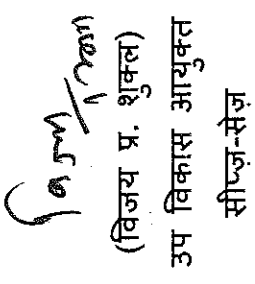 (विजय प्र. शुक्ल)
उप विकास आयुक्त
सीप्ज़-सेज़